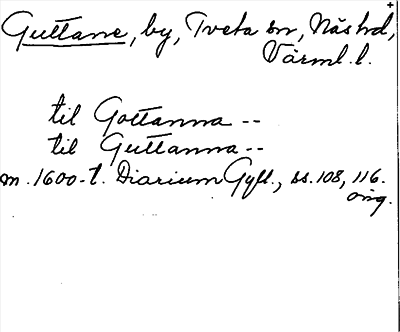 Guttane, by, Tveta sn, Näs hd,
Värml. l.
til Gottanna --
til Guttanna --
m. 1600-t. Diarium Gyll., ss. 108, 116.
orig.